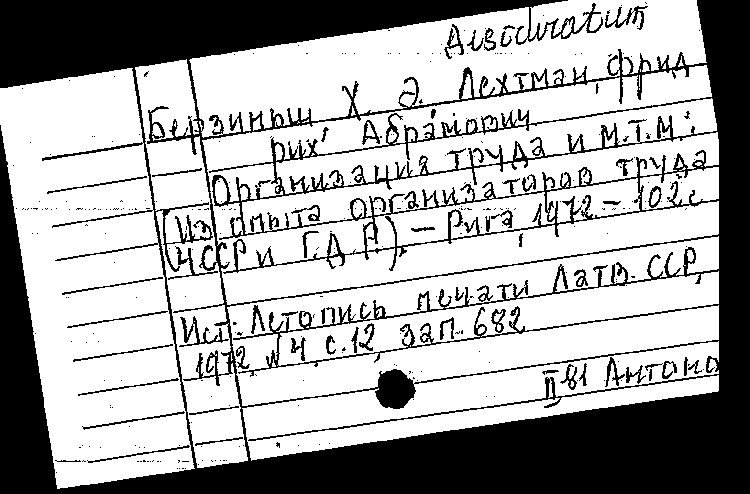 Берзиньш Х. Э. Лехтман, Фрид
рих Абрамович
Организация труда и М.Т.М:
(Из опыта организаторов труда
ЧССР и Г.Д.Р.). — Рига, 1972 — 102 с
Ист: Летопись печати Латв. ССР,
1972, № 4, с. 12, зап. 682
II 81 Антоно